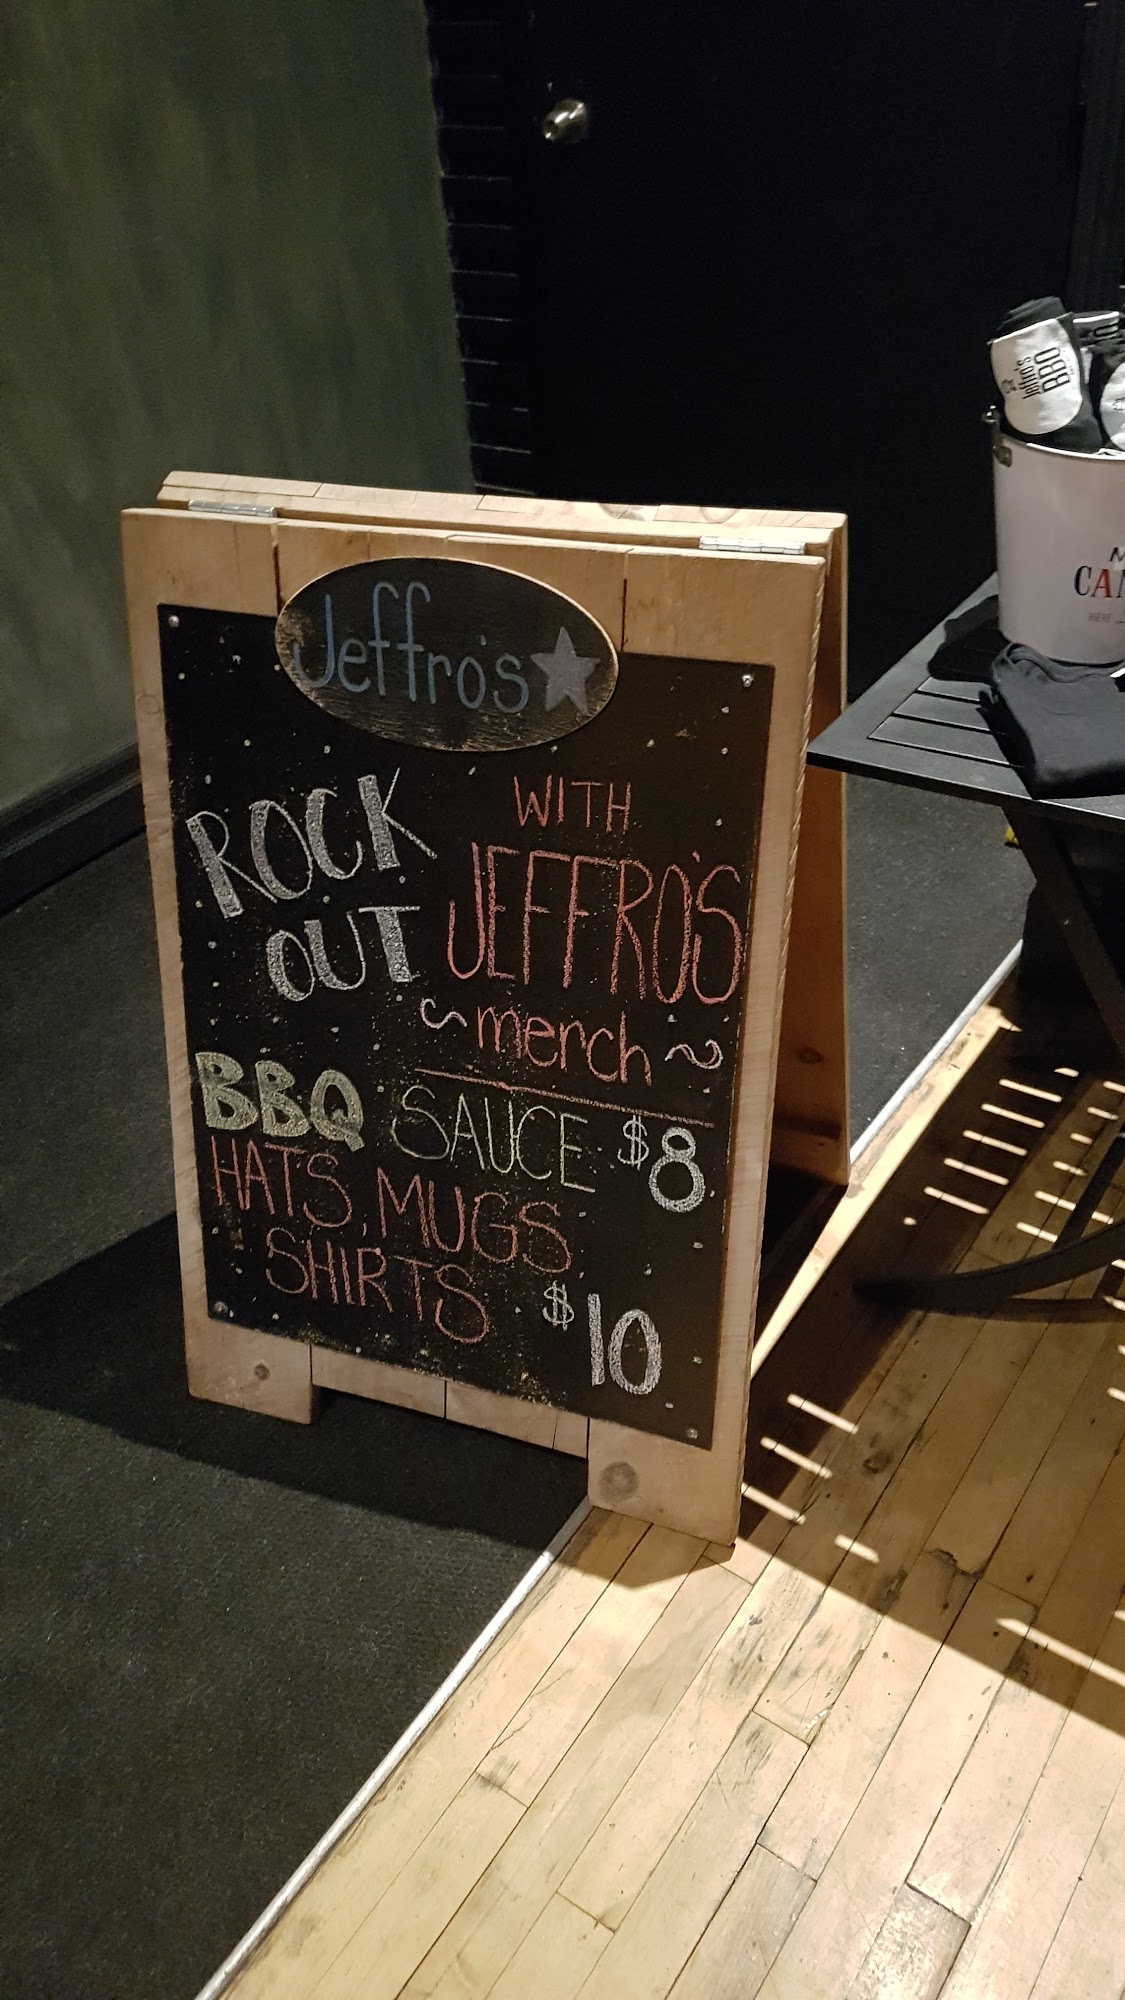 Jeffro's
ROCK
OUT
WITH
JEFFRO'S
~merch~
BBQ SAUCE $8
HATS, MUGS
SHIRTS $10
Jeffro's
BBQ